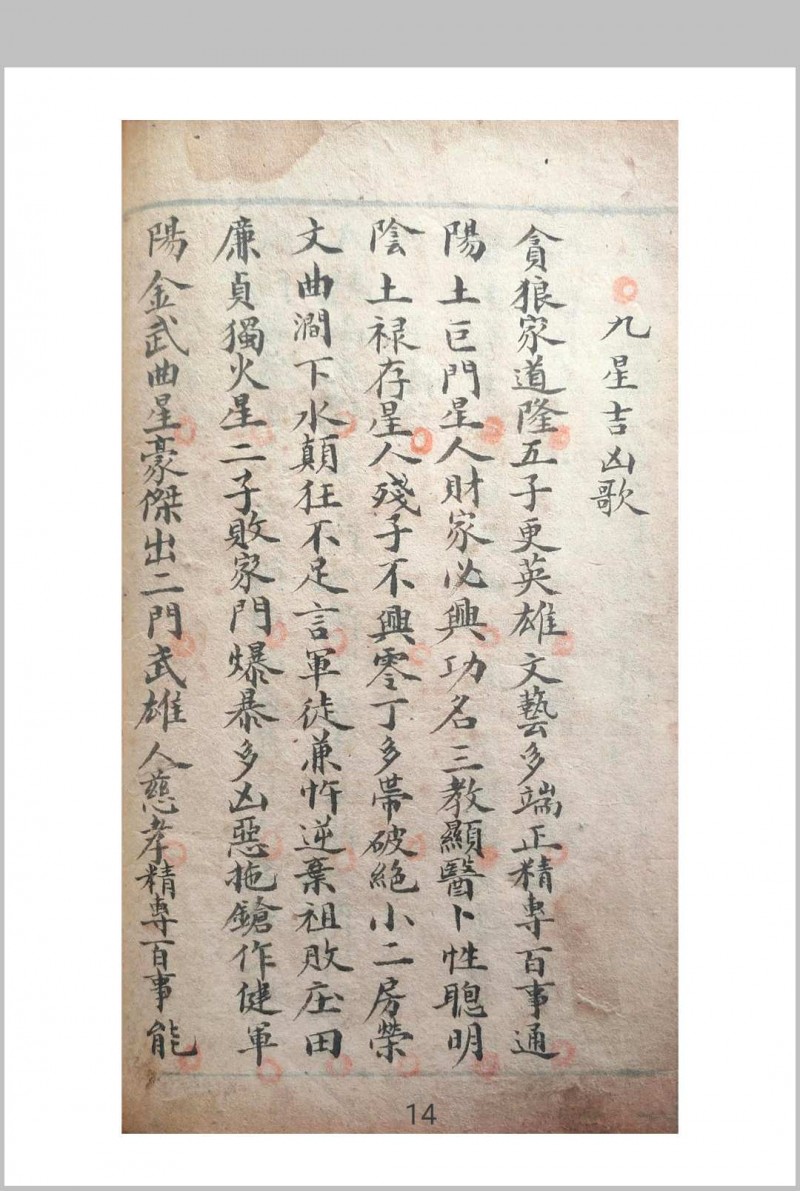 九星吉凶歌
貪狼家道隆五子更英雄文藝多端正精專百事通
陽土巨門星人財家必興功名三教顯醫卜性聰明
陰土祿存星人殘子不興零丁多帶破絕小二房榮
文曲澗下水顛狂不足言軍徒兼忤逆棄祖敗庄田
廉貞獨火星二子敗家門爆暴多凶惡拖鎗作健軍
陽金武曲星豪傑出二門武雄人慈孝精專百事能
14